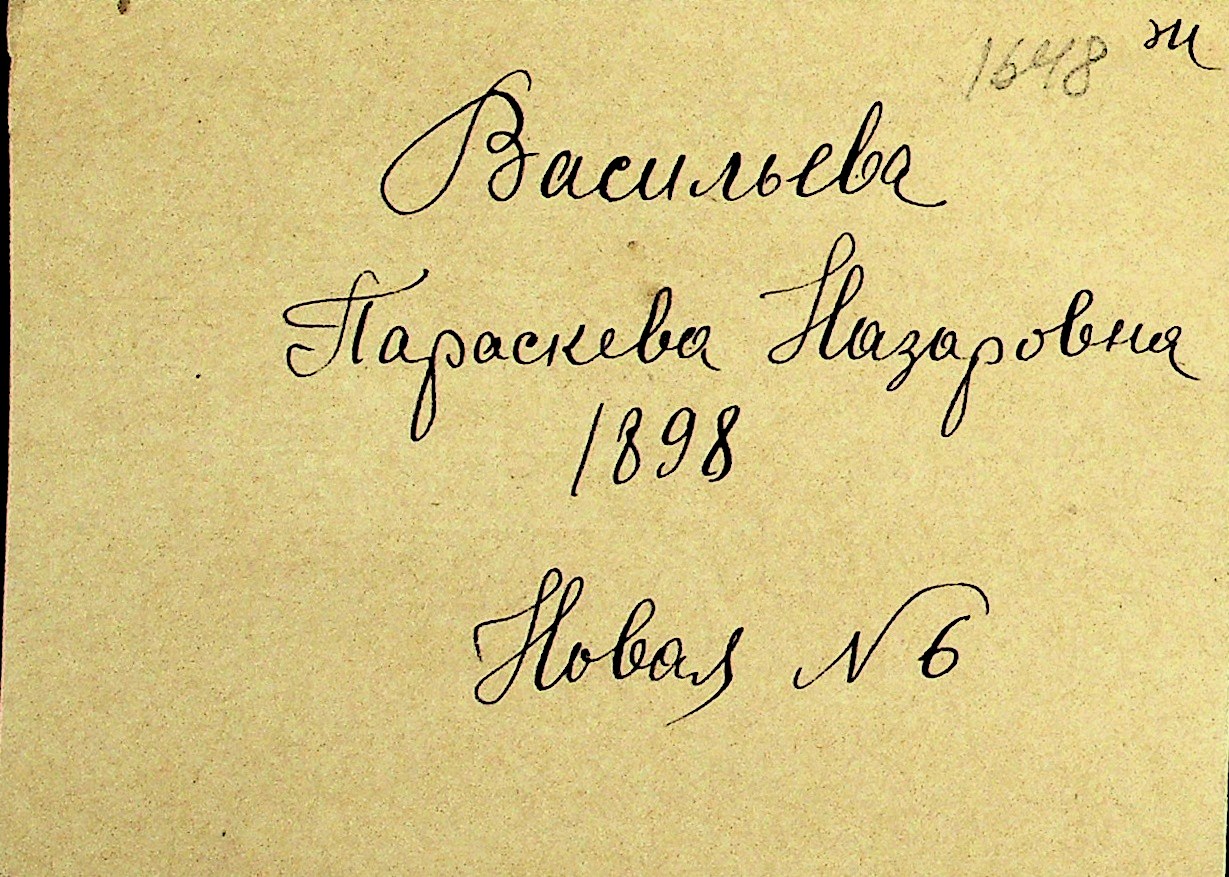 1648 ж
Васильева
Параскева Назаровна
1898
Новая N 6